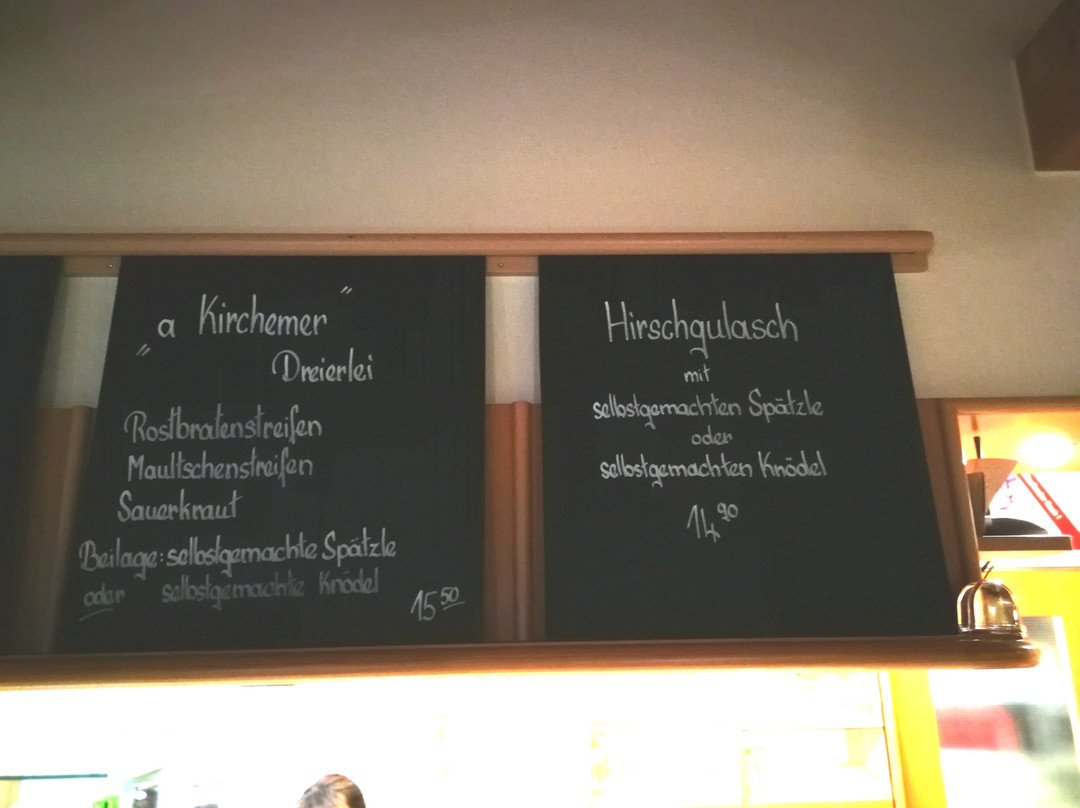 „a Kirchemer"
Dreierlei
Rostbratenstreifen
Maultschenstreifen
Sauerkraut
Beilage: selbstgemachte Spätzle
oder selbstgemachte Knödel
15 50
Hirschgulasch
mit
selbstgemachten Spätzle
oder
selbstgemachten Knödel
14 90